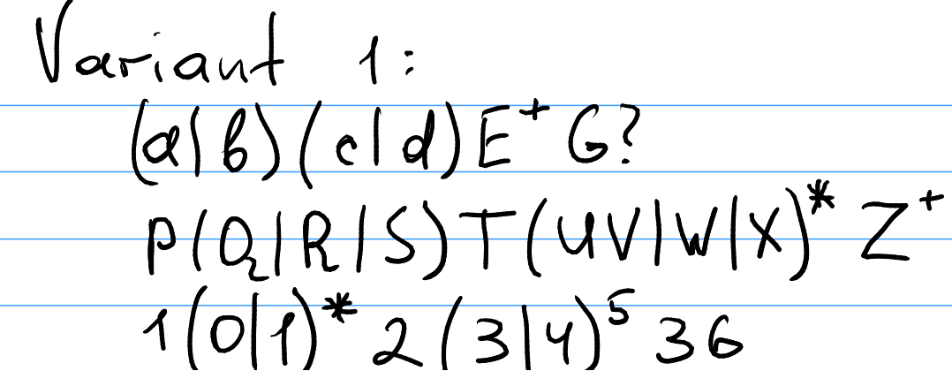 Variant 1:
(a|b)(c|d)E⁺G?
P(Q|R|S)T(UV|W|X)*Z⁺
1(0|1)*2(3|4)⁵36